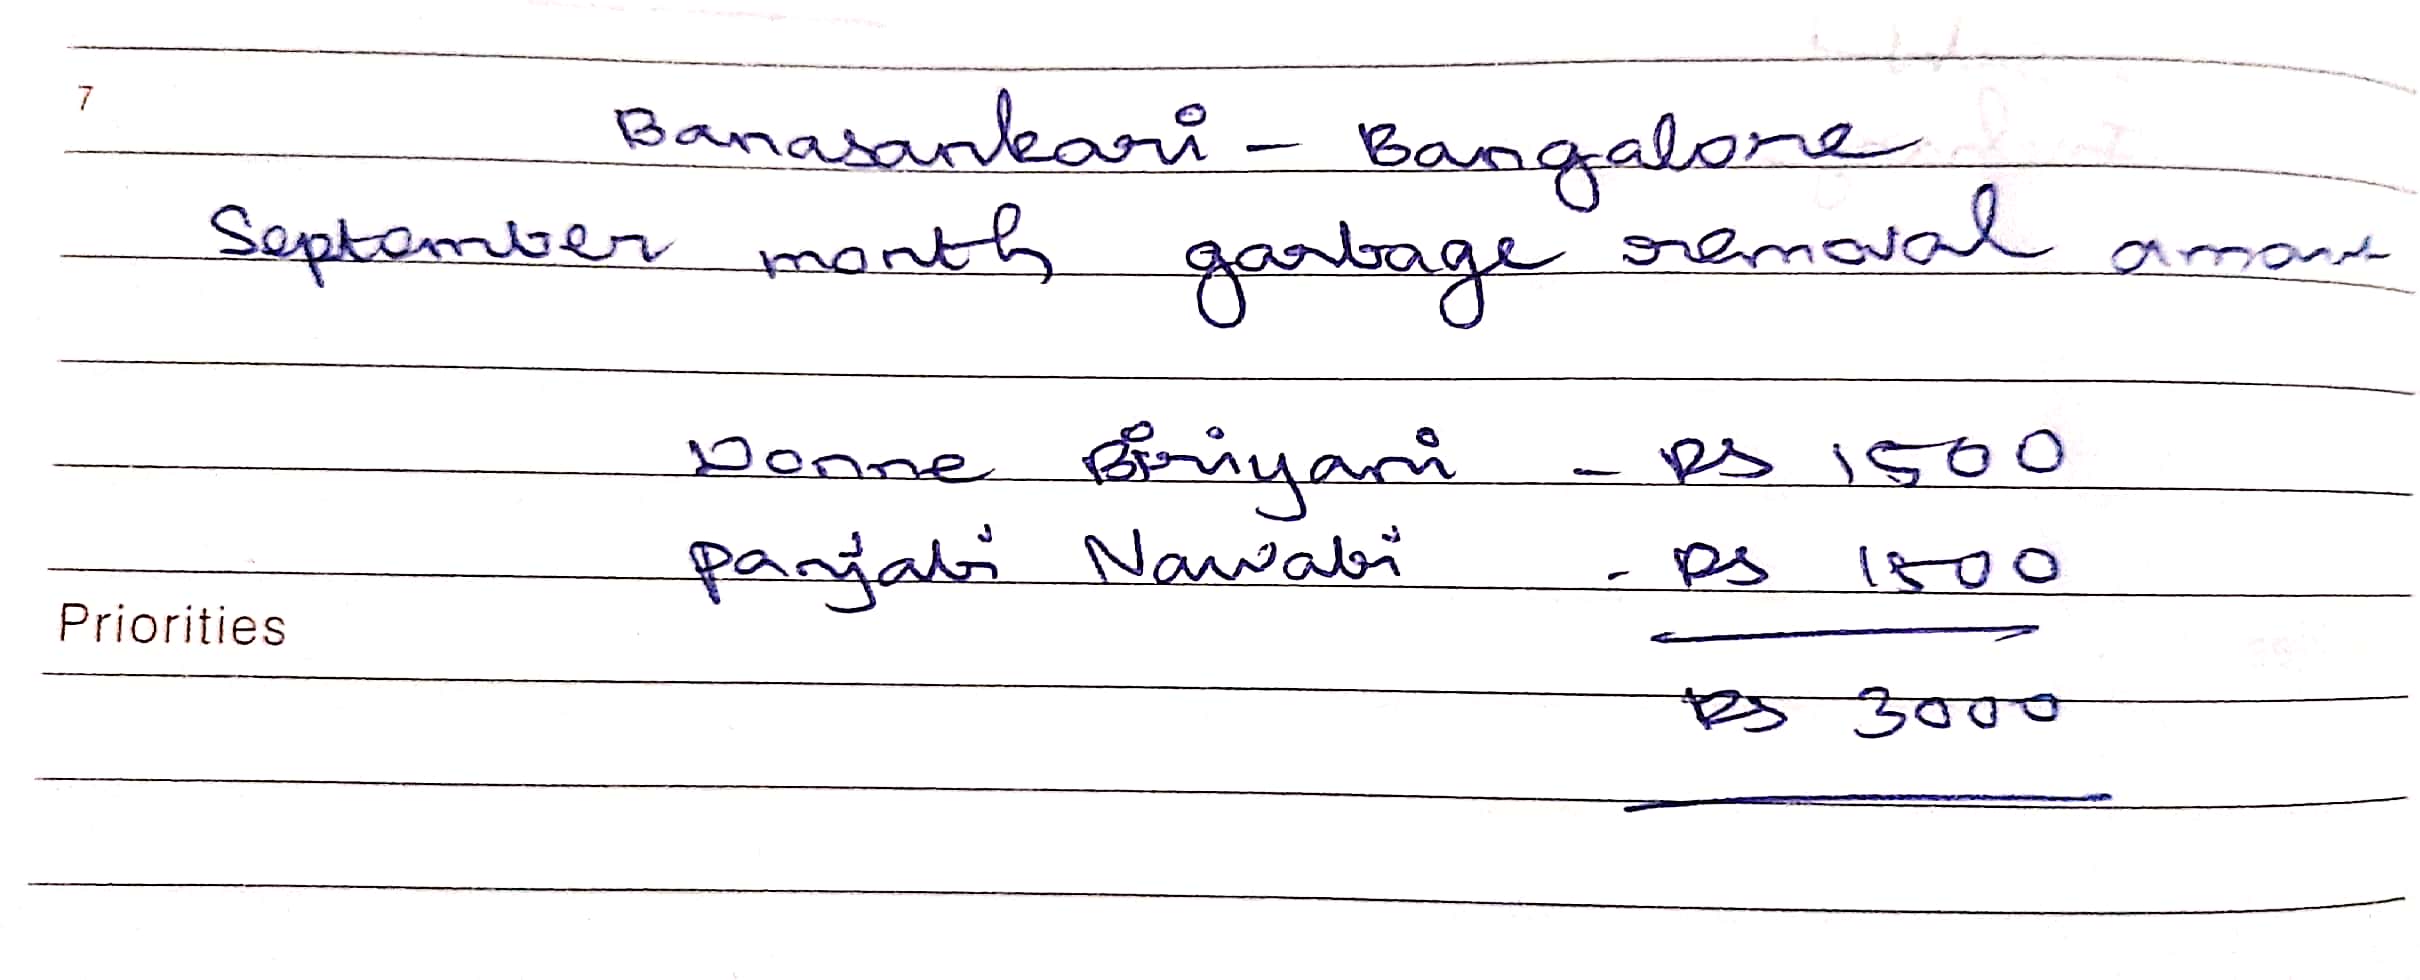 7
Banasankari - Bangalore
September month garbage removal amount
Donne Biriyani - RS 1500
Panjabi Nawabi - RS 1500
Priorities
RS 3000